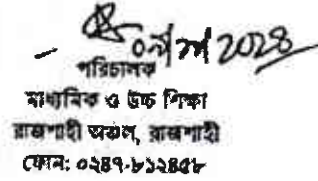 ২০২৪
পরিচালক
মাধ্যমিক ও উচ্চ শিক্ষা
রাজশাহী অঞ্চল, রাজশাহী
ফোন: ০২৪৭-৮১২৪৫৮